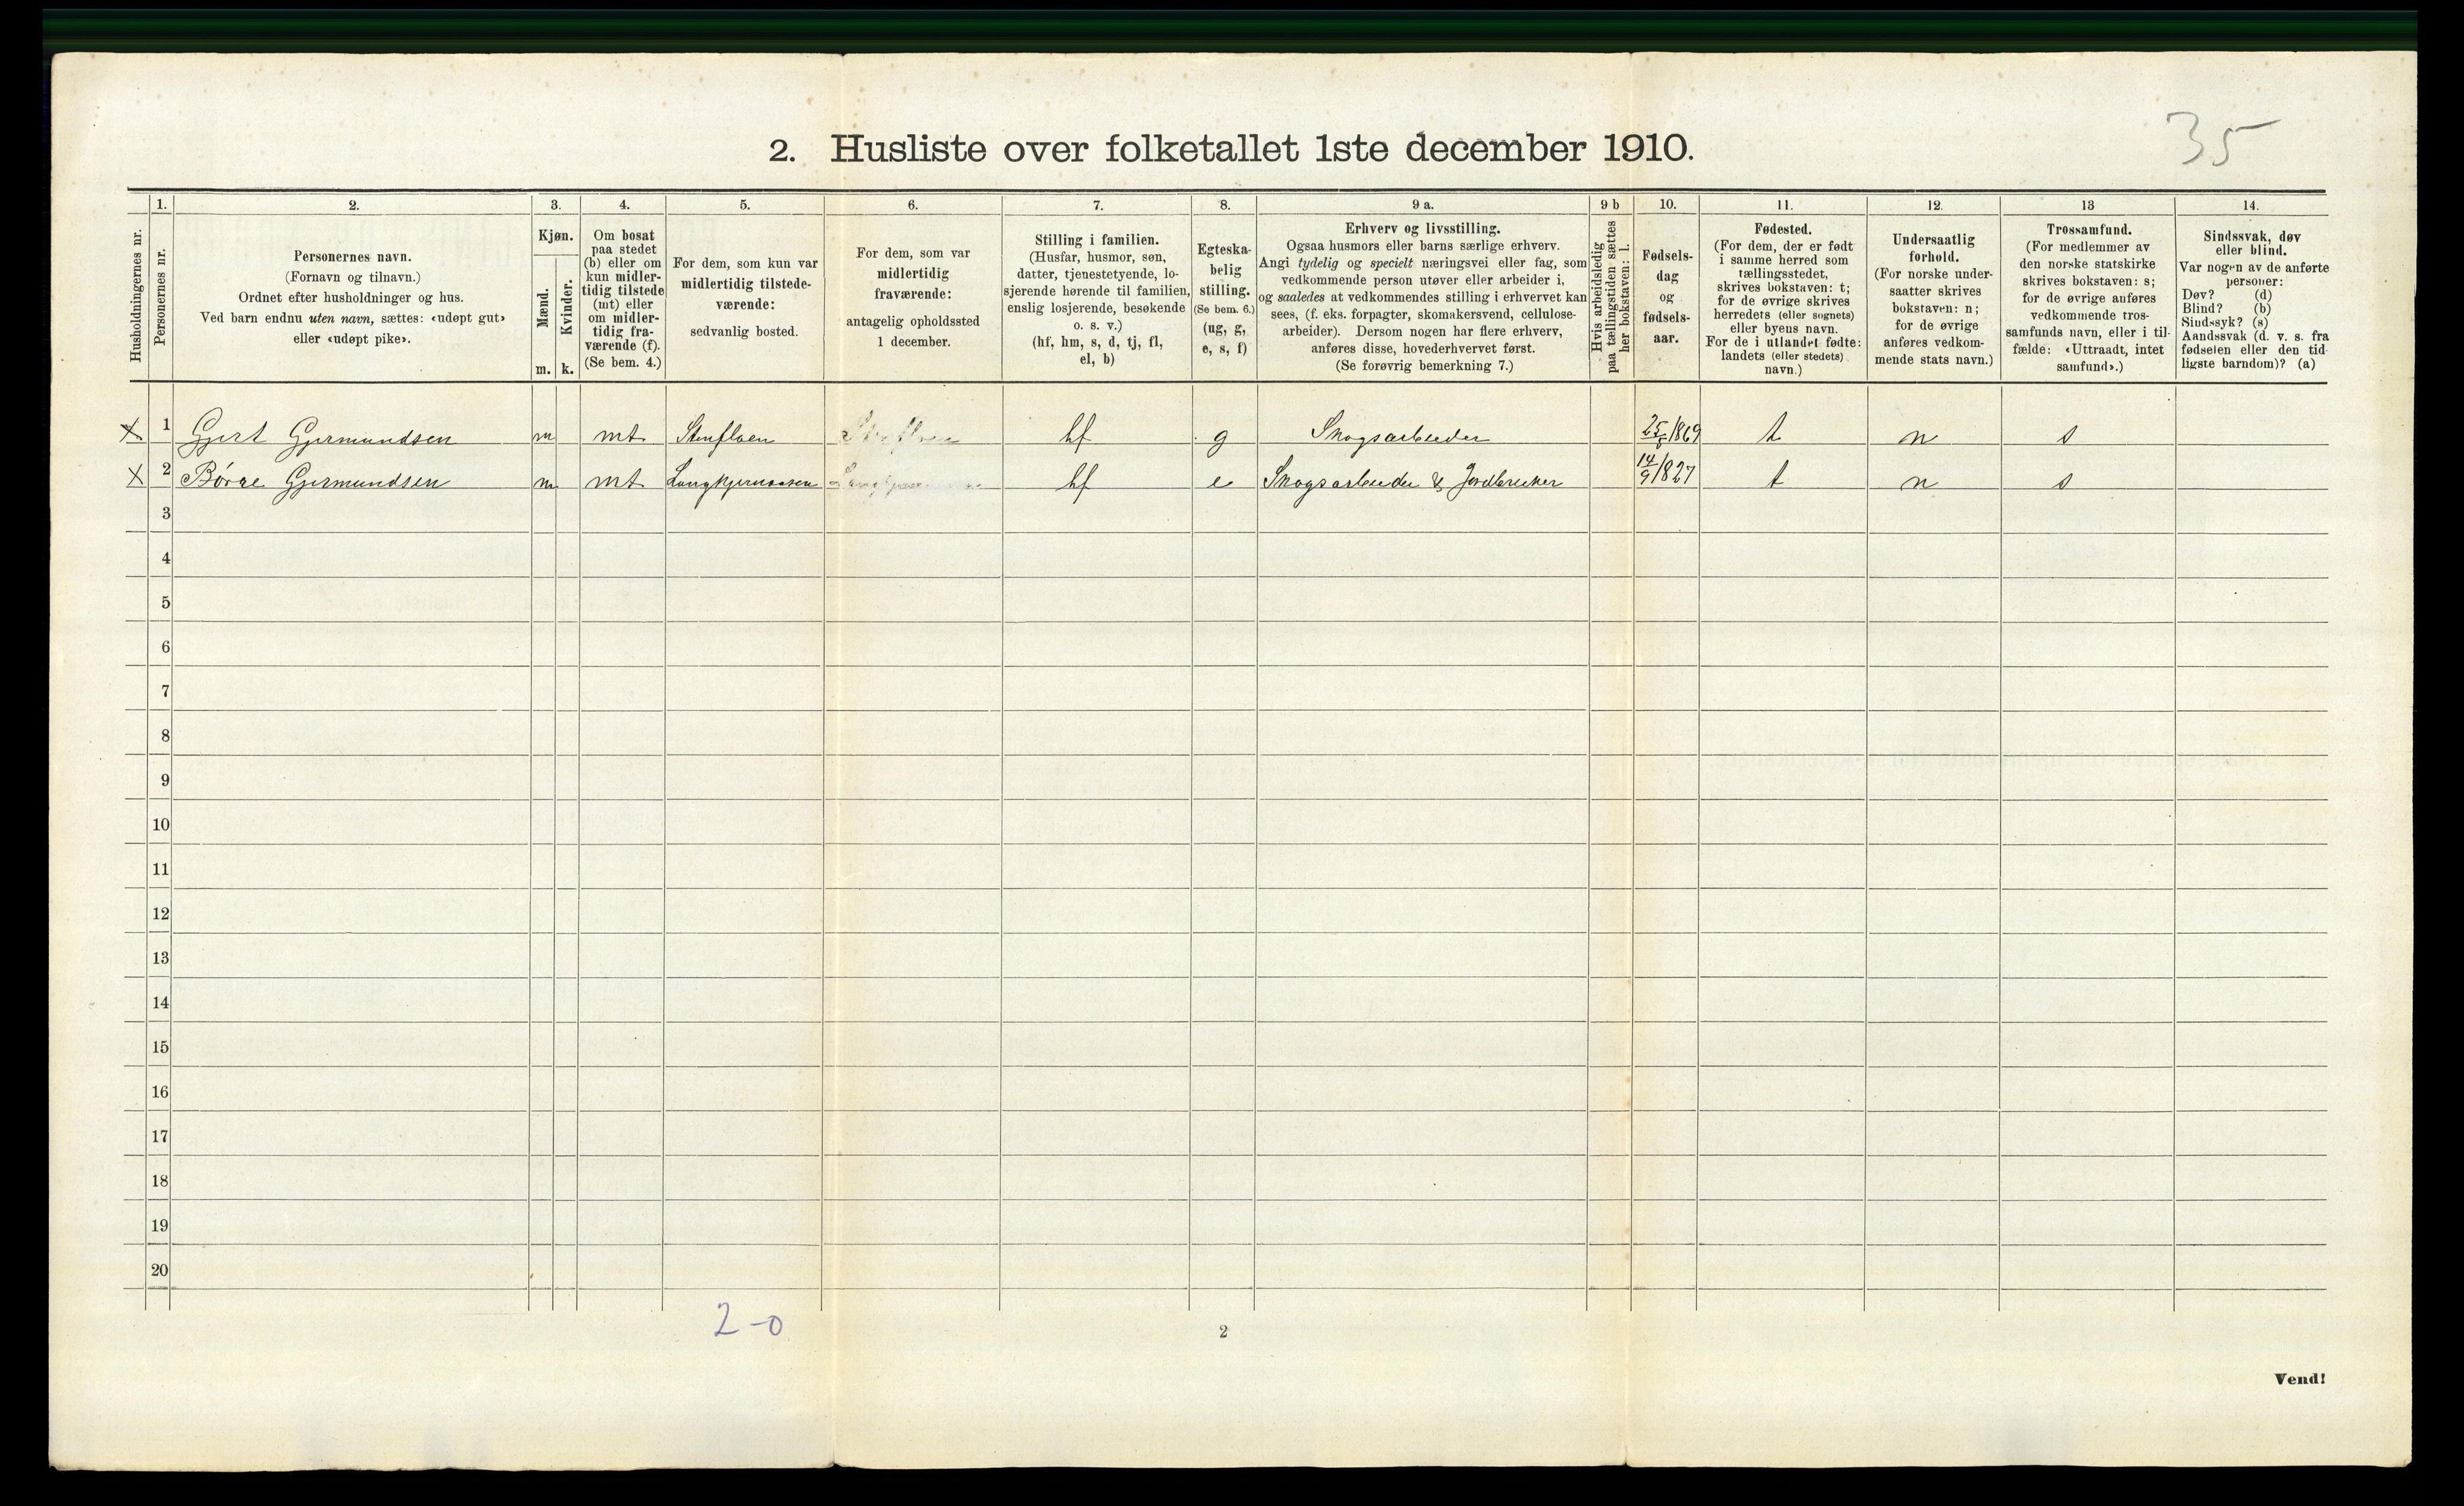 35
2. Husliste over folketallet 1ste december 1910.
Husholdningernes nr.
1.
Personernes nr.
2.
Personernes navn.
(Fornavn og tilnavn.)
Ordnet efter husholdninger og hus.
Ved barn endnu uten navn, sættes: «udøpt gut»
eller «udøpt pike».
3.
Kjøn.
Mænd.
Kvinder.
m. k.
4.
Om bosat
paa stedet
(b) eller om
kun midler-
tidig tilstede
(mt) eller
om midler-
tidig fra-
værende (f).
(Se bem. 4.)
5.
For dem, som kun var
midlertidig tilstede-
værende:
sedvanlig bosted.
6.
For dem, som var
midlertidig
fraværende:
antagelig opholdssted
1 december.
7.
Stilling i familien.
(Husfar, husmor, søn,
datter, tjenestetyende, lo-
sjerende hørende til familien,
enslig losjerende, besøkende
o. s. v.)
(hf, hm, s, d, tj, fl,
el, b)
8.
Egteska-
belig
stilling.
(Se bem. 6.)
(ug, g,
e, s, f)
9 a.
Erhverv og livsstilling.
Ogsaa husmors eller barns særlige erhverv.
Angi tydelig og specielt næringsvei eller fag, som
vedkommende person utøver eller arbeider i,
og saaledes at vedkommendes stilling i erhvervet kan
sees, (f. eks. forpagter, skomakersvend, cellulose-
arbeider). Dersom nogen har flere erhverv,
anføres disse, hovederhvervet først.
(Se forøvrig bemerkning 7.)
9 b
Hvis arbeidsledig
paa tællingstiden sættes
her bokstaven: l.
10.
Fødsels-
dag
og
fødsels-
aar.
11.
Fødested.
(For dem, der er født
i samme herred som
tællingsstedet,
skrives bokstaven: t;
for de øvrige skrives
herredets (eller sognets)
eller byens navn.
For de i utlandet fødte:
landets (eller stedets)
navn.)
12.
Undersaatlig
forhold.
(For norske under-
saatter skrives
bokstaven: n;
for de øvrige
anføres vedkom-
mende stats navn.)
13
Trossamfund.
(For medlemmer av
den norske statskirke
skrives bokstaven: s;
for de øvrige anføres
vedkommende tros-
samfunds navn, eller i til-
fælde: «Uttraadt, intet
samfund».)
14.
Sindssvak, døv
eller blind.
Var nogen av de anførte
personer:
Døv? (d)
Blind? (b)
Sindssyk? (s)
Aandssvak (d. v. s. fra
fødselen eller den tid-
ligste barndom)? (a)
X 1 Gjert Gjermundsen m mt Stenfloen hf g Skogsarbeider 1869 t n s
X 2 Børre Gjermundsen m mt hf e Skogsarbeider & Jordbruker 14/9 1827 t n s
3
4
5
6
7
8
9
10
11
12
13
14
15
16
17
18
19
20
2-0
2
Vend!